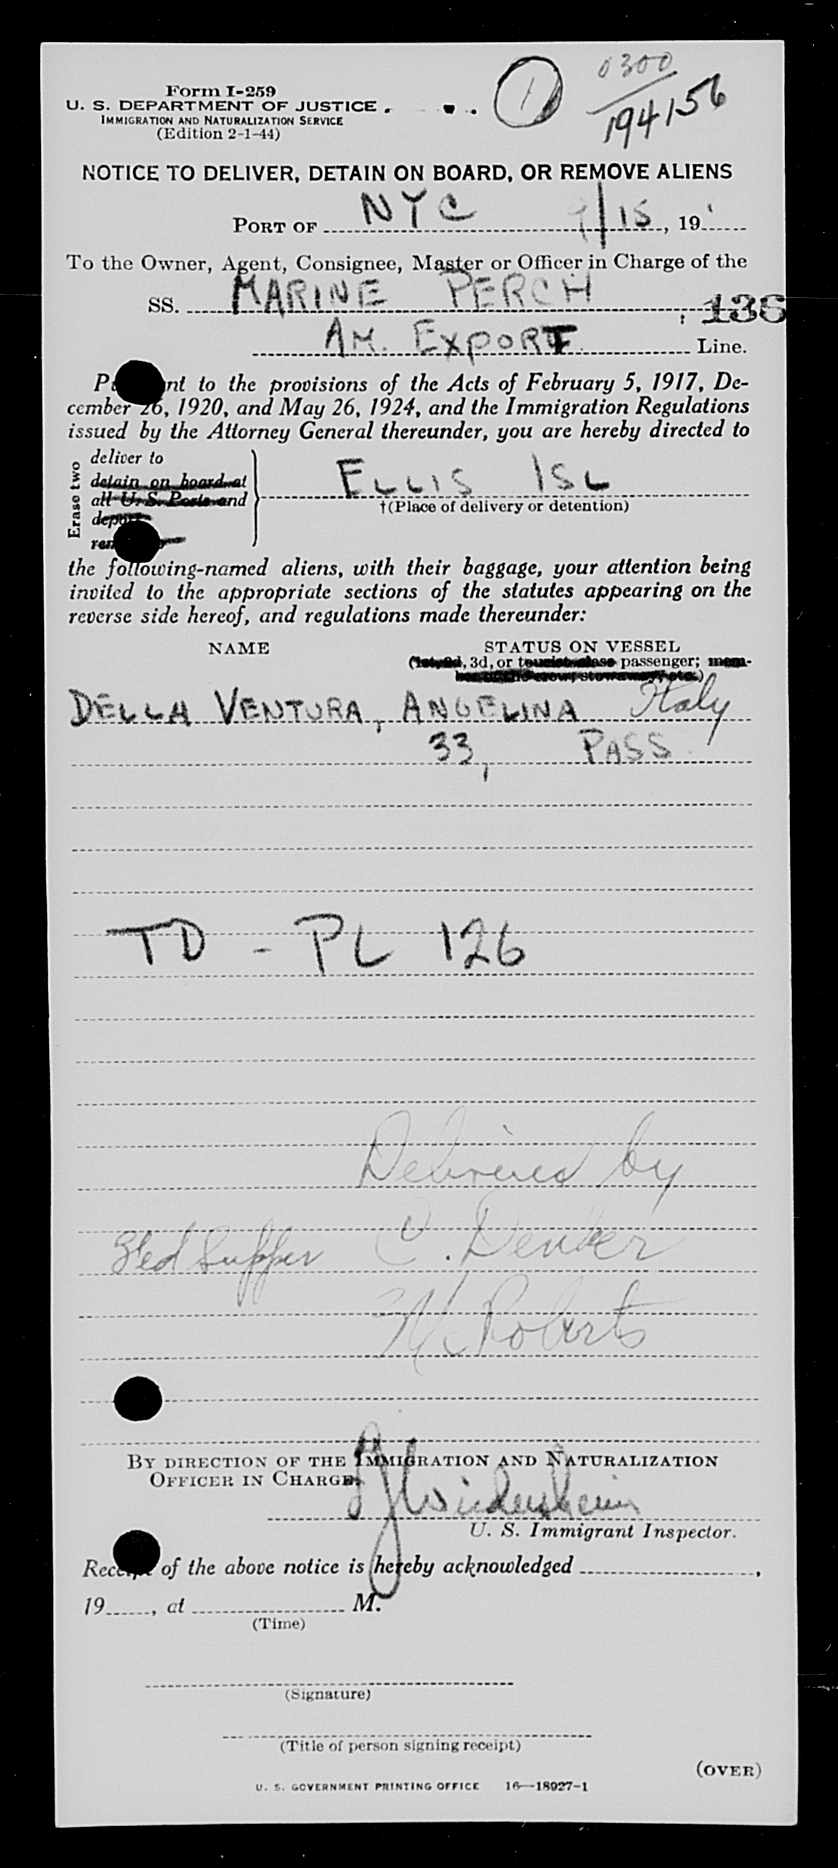 Form I-259
U. S. DEPARTMENT OF JUSTICE
IMMIGRATION AND NATURALIZATION SERVICE
(Edition 2-1-44)
1
0300
194156
NOTICE TO DELIVER, DETAIN ON BOARD, OR REMOVE ALIENS
PORT OF NYC 9/15, 19
To the Owner, Agent, Consignee, Master or Officer in Charge of the
SS. MARINE PERCH, 136
AM. EXPORT Line.
nt to the provisions of the Acts of February 5, 1917, De-
cember 26, 1920, and May 26, 1924, and the Immigration Regulations
issued by the Attorney General thereunder, you are hereby directed to
Erase two
deliver to
detain on board at
all U. S. Ports and
ELLIS ISL
†(Place of delivery or detention)
the following-named aliens, with their baggage, your attention being
invited to the appropriate sections of the statutes appearing on the
reverse side hereof, and regulations made thereunder:
NAME STATUS ON VESSEL
3d, or tourist-class passenger; mem-
DELLA VENTURA, ANGELINA Italy
33, PASS
TD - PL 126
Delivered by
Fed Supper C.
McRoberts
BY DIRECTION OF THE IMMIGRATION AND NATURALIZATION
OFFICER IN CHARGE
U. S. Immigrant Inspector.
Receipt of the above notice is hereby acknowledged ,
19 , at M.
(Time)
(Signature)
(Title of person signing receipt)
(OVER)
U. S. GOVERNMENT PRINTING OFFICE 16—18927-1